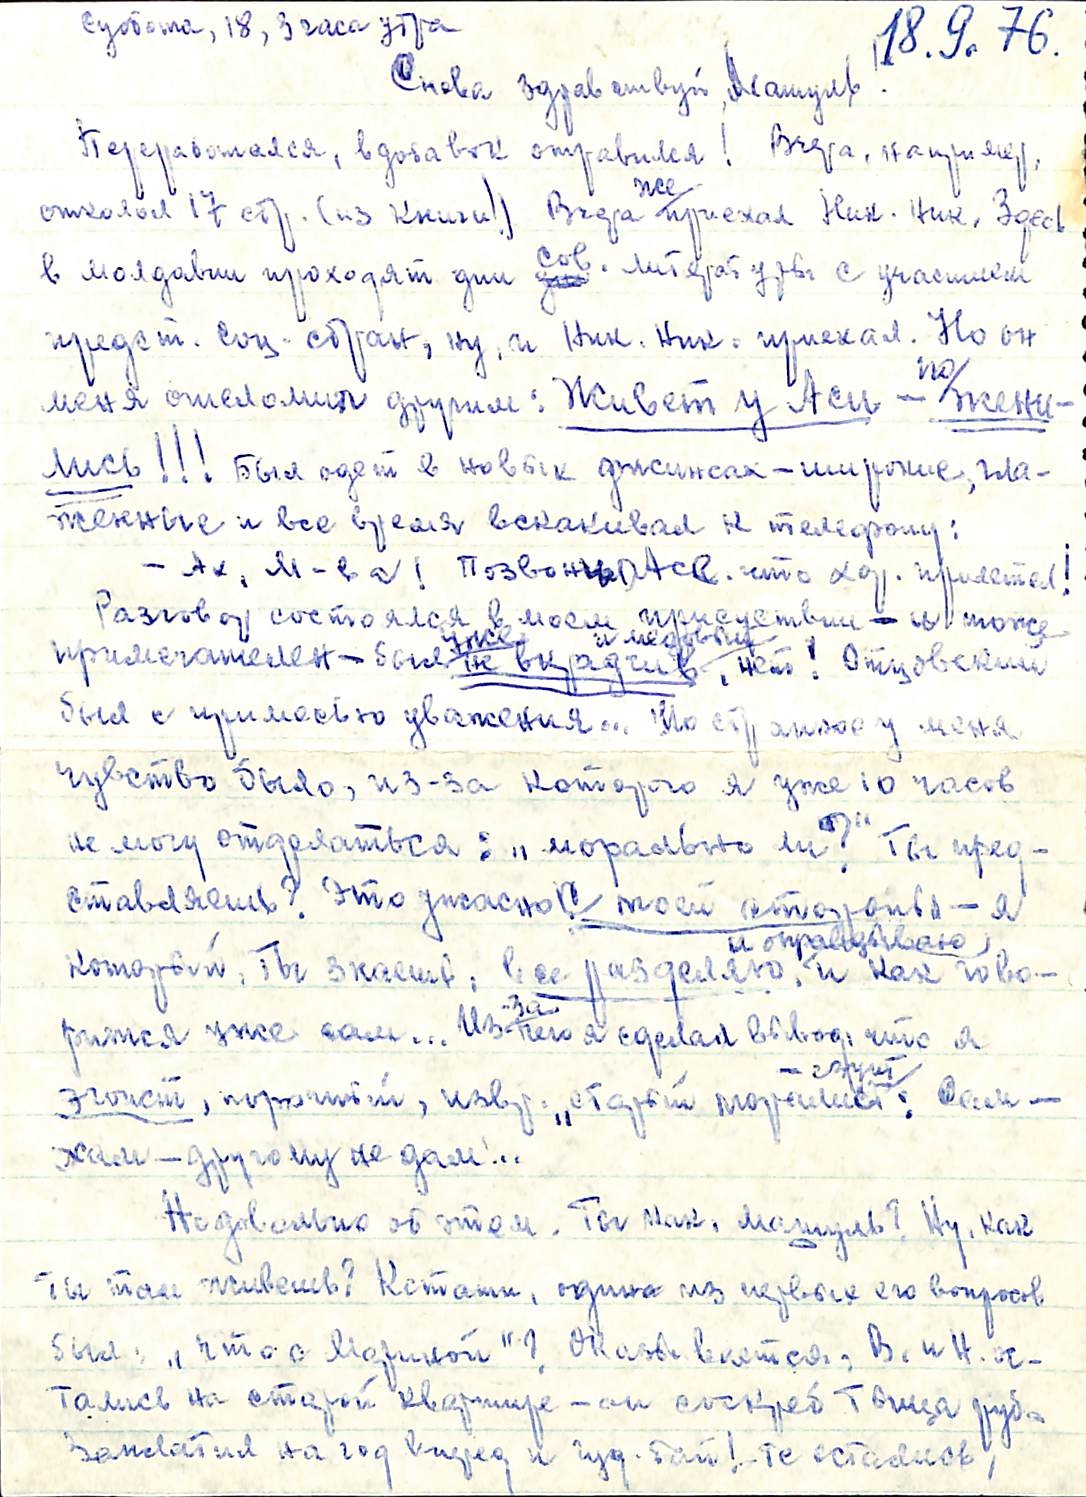 Суббота, 18, 3 часа утра
18.9.76.
Снова здравствуй, Машуль!
Переработался, вдобавок отравился! Вчера, например,
отколол 17 стр. (из книги!) Вчера же приехал Ник. Ник. Здесь
в Молдавии проходят дни сов. литературы с участием
предст. соц. стран, ну, и Ник. Ник. приехал. Но он
меня ошеломил другим: Живет у Аси – пожени-
лись!!! Был одет в новых джинсах – широкие, гла-
женные и все время вскакивал к телефону:
– Ах, М-ва! Позвони Асе, что хор. прилетел!
Разговор состоялся в моем присутствии – и тоже
примечателен – был уже не вкрадчив и медовый, нет! Отцовский
был с примесью уважения... Но странное у меня
чувство было, из-за которого я уже 10 часов
не могу отделаться: „морально ли?" Ты пред-
ставляешь? Это ужасно! С моей стороны – я
который, ты знаешь, все разделяю и оправдываю, и как гово-
рится уже сам... Из-за чего я сделал вывод, что я
эгоист, порочный, извр. „старый моралист – скут":  Сам –
хам – другому не дам!...
Но довольно об этом. Ты как, Машуль? Ну, как
ты там живешь? Кстати, один из первых его вопросов
был: „Что с Мариной"? Оказывается, В. и Н. ос-
тались на старой квартире – он соскреб тыщу руб.
Заплатил на год вперед и гуд-бай! Те остались,